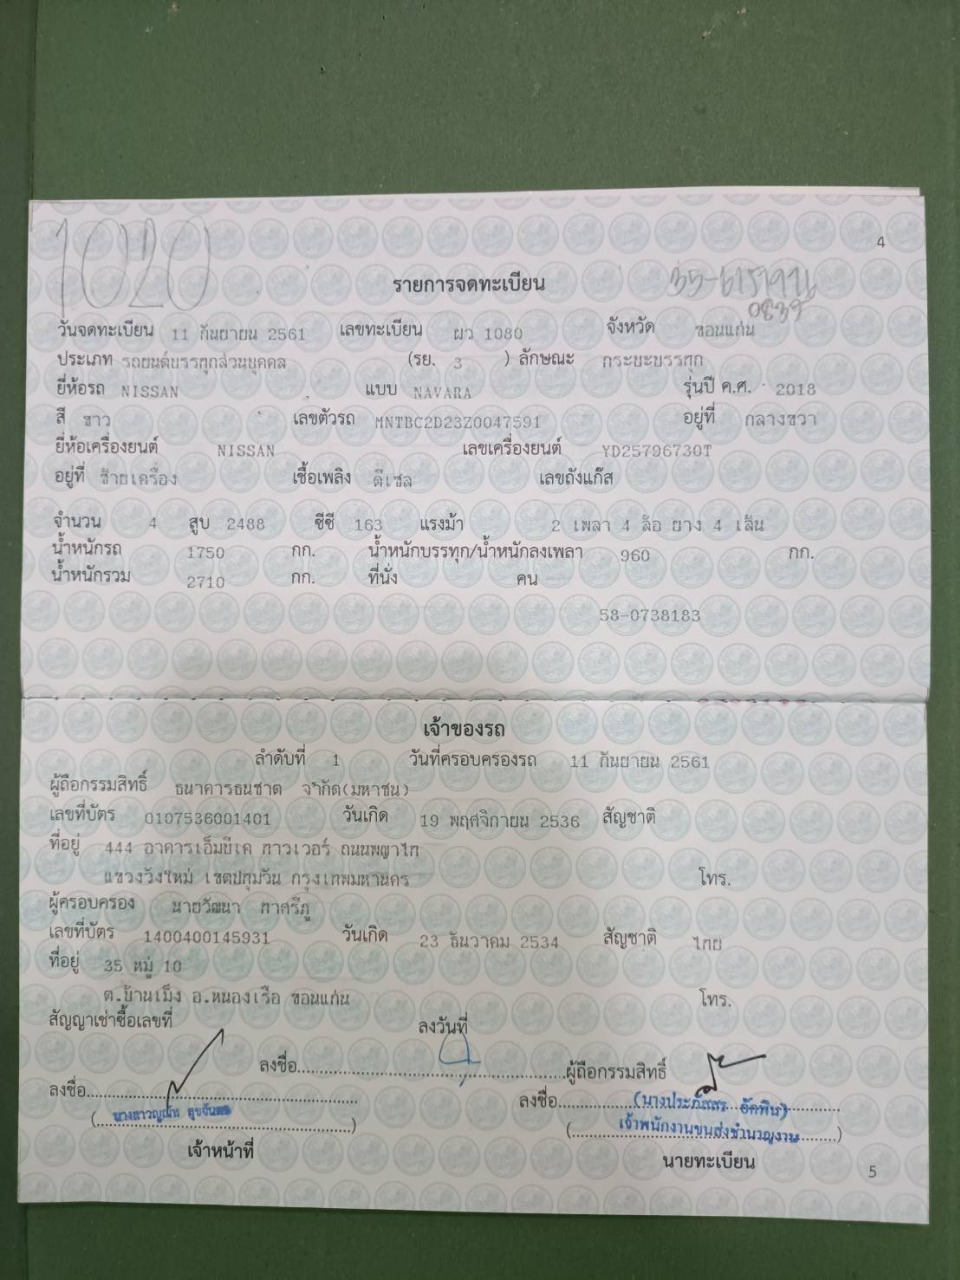 1020
4
รายการจดทะเบียน
วันจดทะเบียน 11 กันยายน 2561 เลขทะเบียน ผว 1080 จังหวัด ขอนแก่น
ประเภท รถยนต์บรรทุกส่วนบุคคล (รย. 3 ) ลักษณะ กระบะบรรทุก
ยี่ห้อรถ NISSAN แบบ NAVARA รุ่นปี ค.ศ. 2018
สี ขาว เลขตัวรถ MNTBC2D23Z0047591 อยู่ที่ กลางขวา
ยี่ห้อเครื่องยนต์ NISSAN เลขเครื่องยนต์ YD25796730T
อยู่ที่ ซ้ายเครื่อง เชื้อเพลิง ดีเซล เลขถังแก๊ส
จำนวน 4 สูบ 2488 ซีซี 163 แรงม้า 2 เพลา 4 ล้อ ยาง 4 เส้น
น้ำหนักรถ 1750 กก. น้ำหนักบรรทุก/น้ำหนักลงเพลา 960 กก.
น้ำหนักรวม 2710 กก. ที่นั่ง คน
58-0738183
เจ้าของรถ
ลำดับที่ 1 วันที่ครอบครองรถ 11 กันยายน 2561
ผู้ถือกรรมสิทธิ์ ธนาคารธนชาต จำกัด(มหาชน)
เลขที่บัตร 0107536001401 วันเกิด 19 พฤศจิกายน 2536 สัญชาติ
ที่อยู่ 444 อาคารเอ็มบีเค ทาวเวอร์ ถนนพญาไท
แขวงวังใหม่ เขตปทุมวัน กรุงเทพมหานคร โทร.
ผู้ครอบครอง นายวัฒนา ทาศรีภู
เลขที่บัตร 1400400145931 วันเกิด 23 ธันวาคม 2534 สัญชาติ ไทย
ที่อยู่ 35 หมู่ 10
ต.บ้านเม็ง อ.หนองเรือ ขอนแก่น โทร.
สัญญาเช่าซื้อเลขที่ ลงวันที่
ลงชื่อ ผู้ถือกรรมสิทธิ์
ลงชื่อ ลงชื่อ
(นางประภัสสร
เจ้าพนักงานขนส่งชำนาญงาน
เจ้าหน้าที่ นายทะเบียน
5